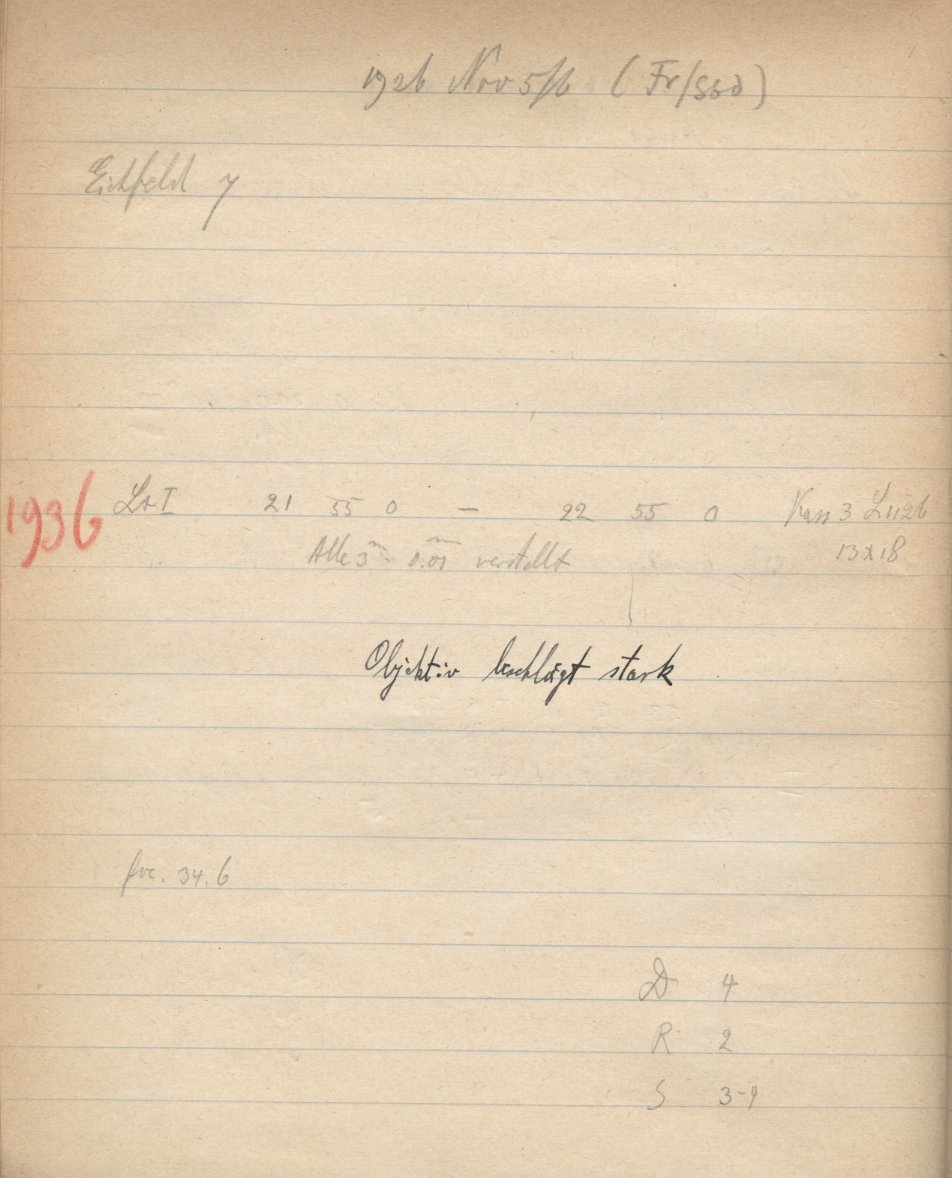 1926 Nov 5/6 (Fr/Sbd)
Eichfeld 7
1936 Lt I 21 55 0 — 22 55 0 Kass 3 L 1126
Alle 3m 0.01 mm verstellt 13x18
Objektiv beschlägt stark
foc. 34.6
D 4
R 2
S 3-4